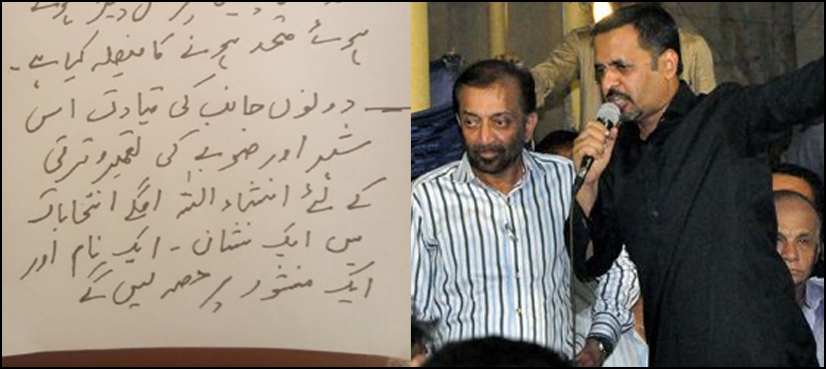 ہوئے متحد ہونے کا فیصلہ کیا ہے۔
— دونوں جانب کی قیادت اس
شہر اور صوبے کی تعمیر و ترقی
کے لئے انشاء اللہ اگلے انتخابات
میں ایک نشان - ایک نام اور
ایک منشور پر حصہ لیں گے